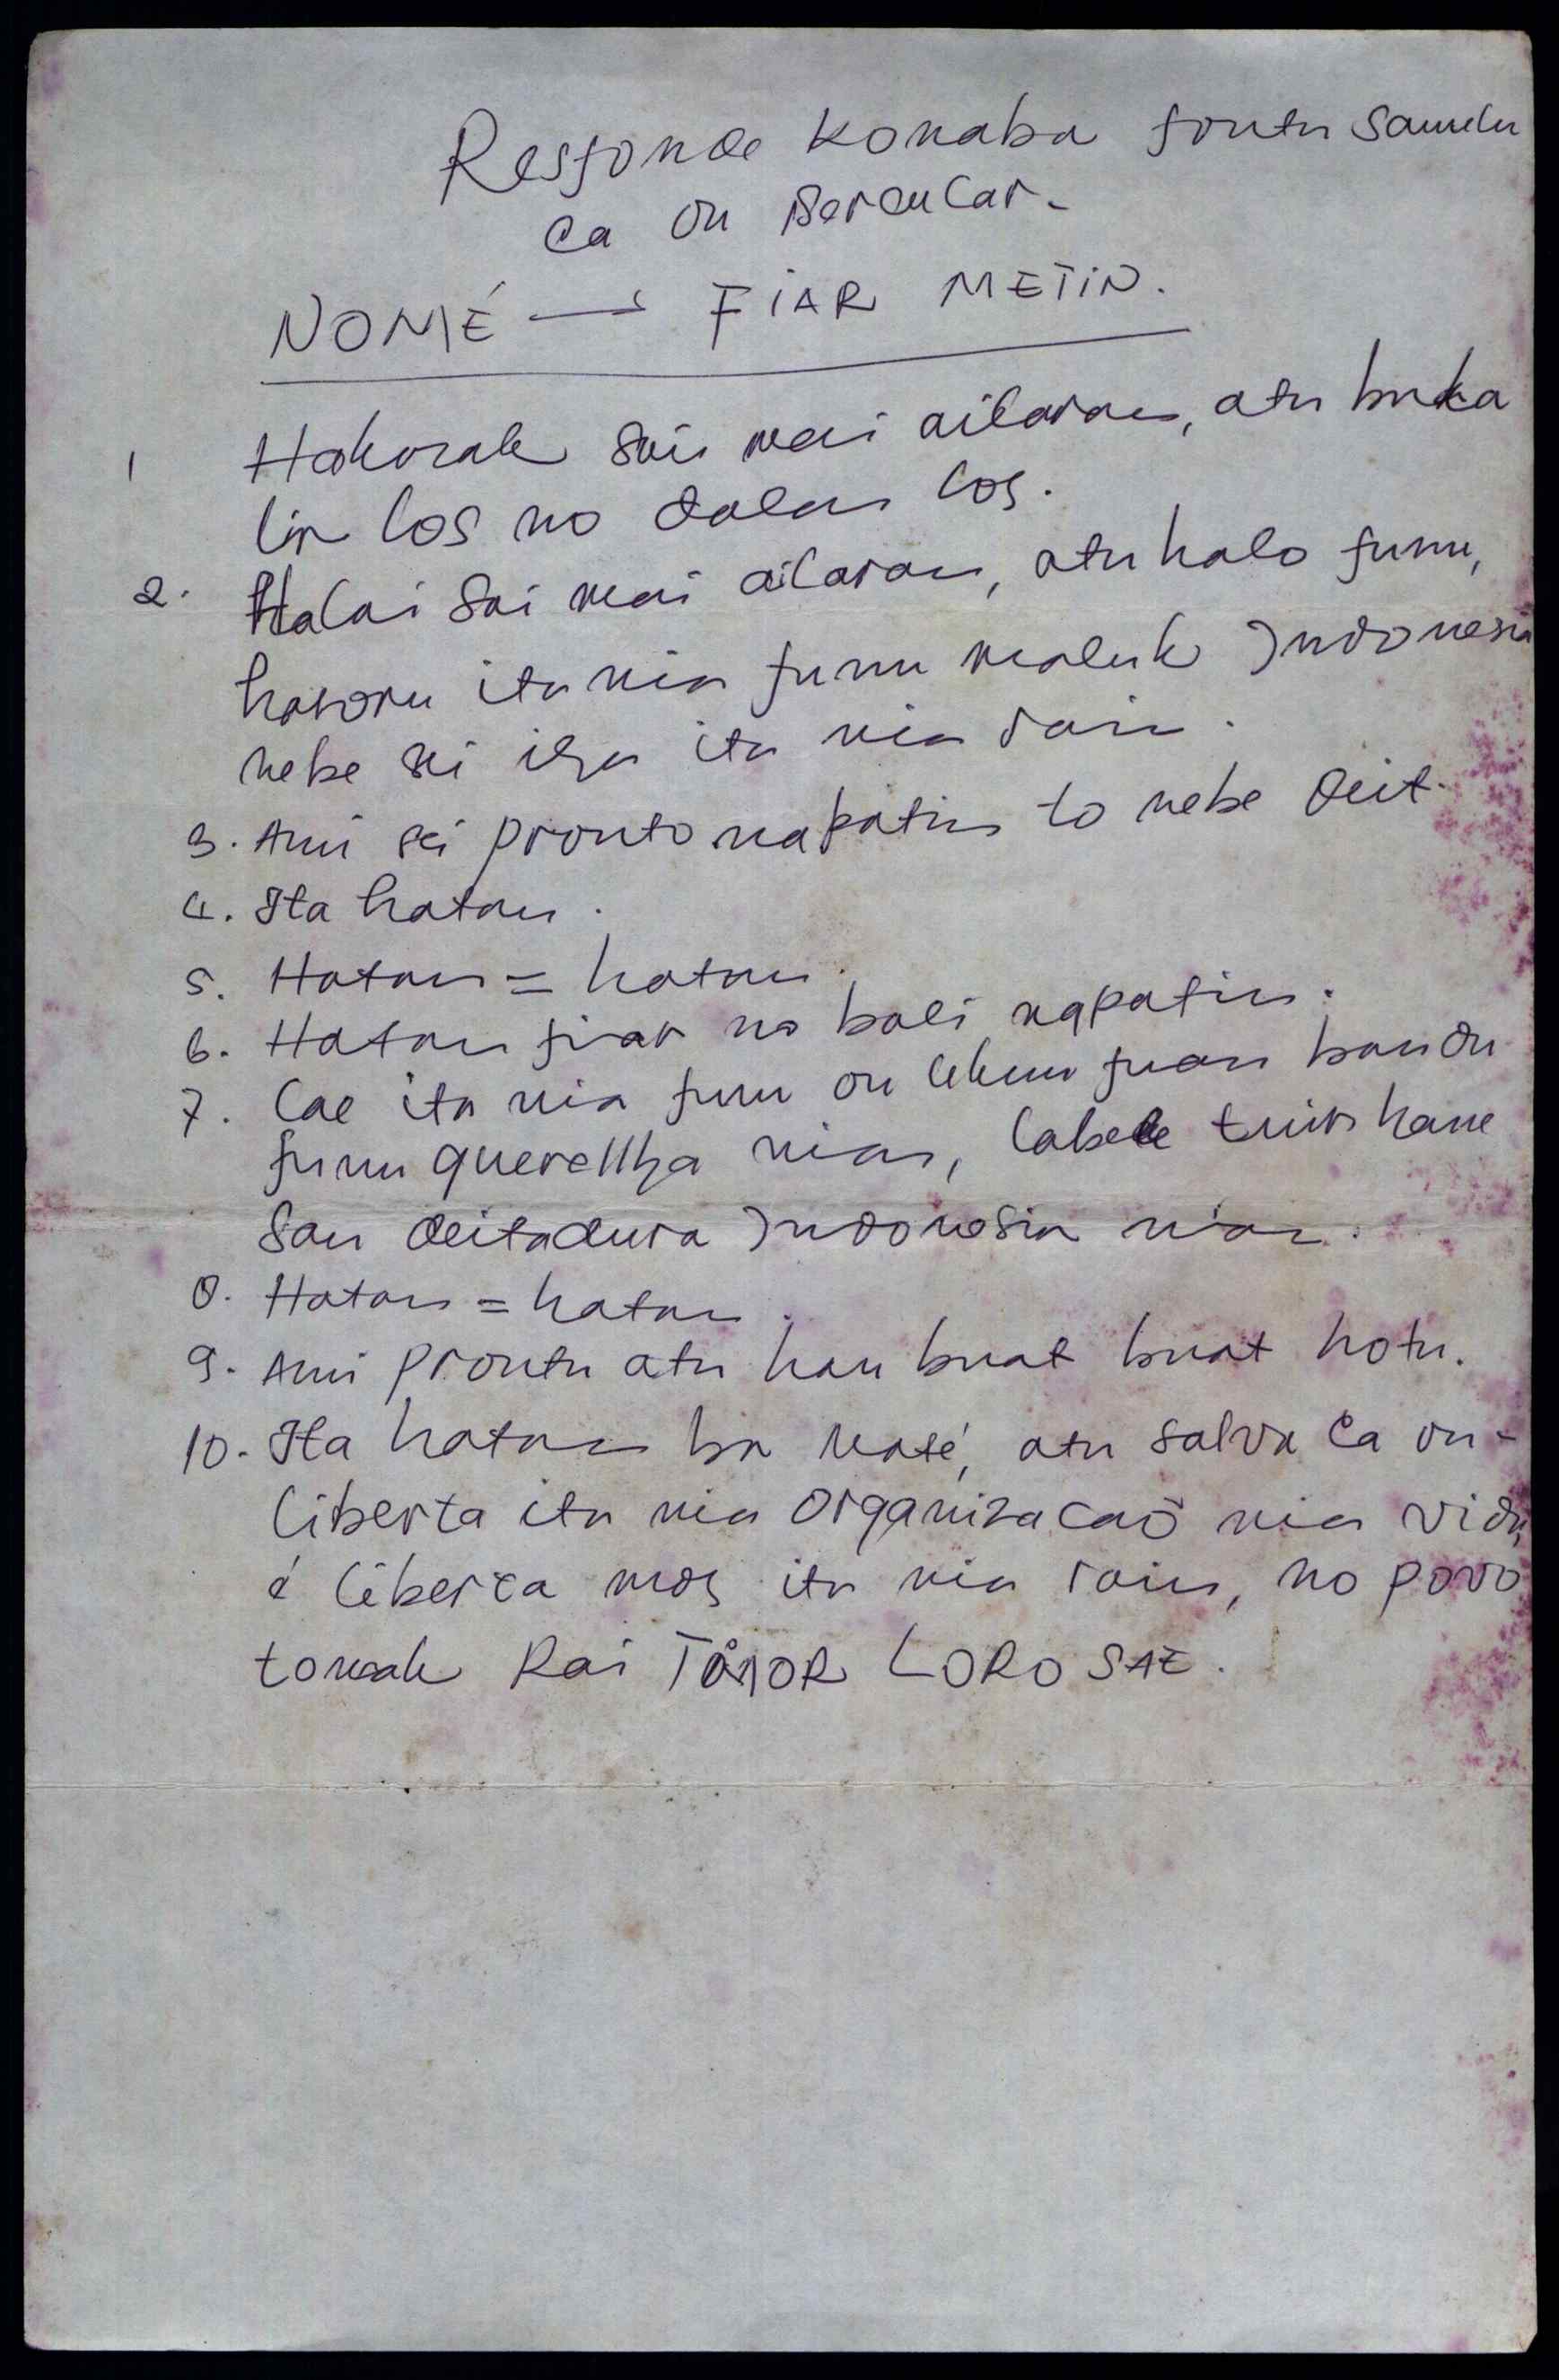 Responde konaba pontu sanulu
ca ou sercular.
NOMÉ → FIAR METIN.
1 Hakorak sai mai ailaran, atu buka
lia los no dalan los.
2. Halai sai mai ailaran, atu halo funu,
hasoru ita nia funu maluk Indonesia
nebe sei iha ita nia rain.
3. Ami sei pronto napatin to nebe deit.
4. Ita hatan.
5. Hatan = hatan.
6. Hatan fiar no bali napatin.
7. Lae ita nia funu ou lekun fuan bandu
funu querellha nian, labele tuir hane
san deitadura Indonesia nian.
8. Hatan = hatan.
9. Ami prontu atu han buat buat hotu.
10. Ita hatan ba maté, atu salva ca ou-
liberta ita nia organizacaõ nia vida,
é liberta mos ita nia rain, no povo
tomak Rai TIMOR LORO SAE.